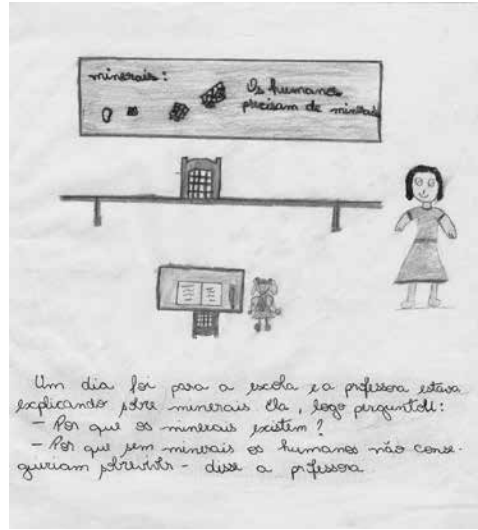 minerais:
Os humanos
precisam de minerais
Um dia foi para a escola e a professora estava
explicando sobre minerais Ela, logo perguntou:
- Por que os minerais existem?
- Por que sem minerais os humanos não conse-
guiriam sobreviver - disse a professora.